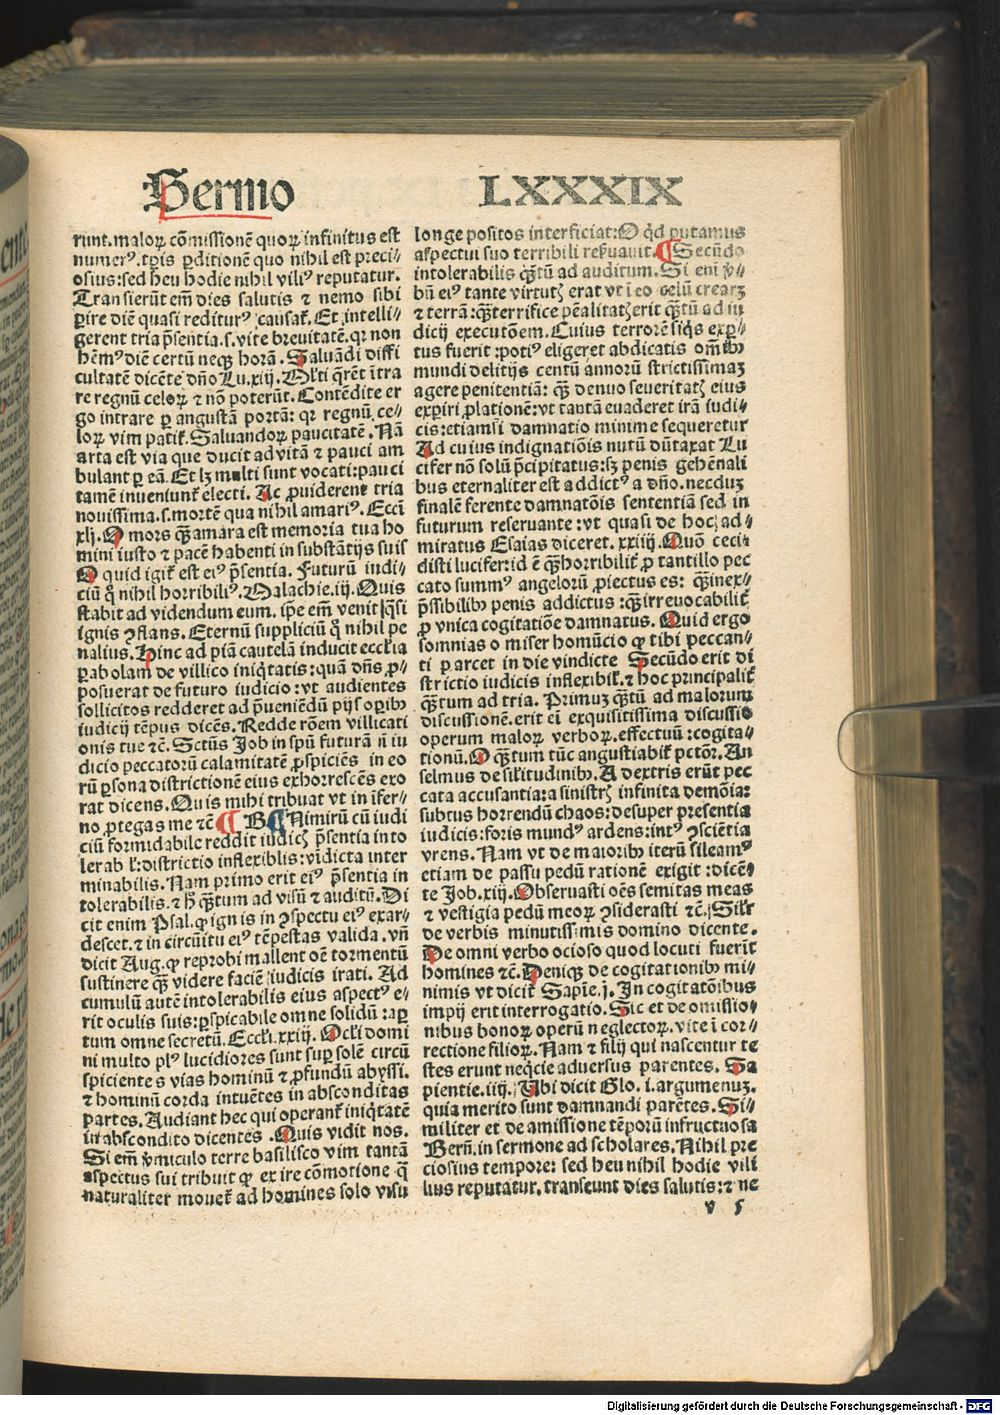 Sermo LXXXIX
runt. maloꝝ cōmissionē quoꝝ infinitus est
numerꝰ. tꝑis ꝑditionē quo nihil est preci⸗
osius: sed heu hodie nihil viliꝰ reputatur.
Transierūt em̄ dies salutis ⁊ nemo sibi
ꝑire diē quasi rediturꝰ causaꝉ. Et intelli⸗
gerent tria p̄sentia. s. vite breuitatē. qr non
hēmꝰ diē certū neqꝫ horā. Saluādi diffi
cultatē dicēte dn̄o Lu. xiij. Ml̕ti q̄rēt ītra
re regnū celoꝝ ⁊ nō poterūt. Contēdite er
go intrare ꝑ angustā portā: qr regnū ce⸗
loꝝ vim patiꝉ. Saluandoꝝ paucitatē. Nā
arta est via que ducit ad vitā ⁊ pauci am
bulant ꝑ eā. Et lꝫ multi sunt vocati: pauci
tamē inueniunꝉ electi. Ac ꝓuiderent tria
nouissima. s. mortē qua nihil amariꝰ. Ecci
xlj. O mors qꝫ amara est memoria tua ho
mini iusto ⁊ pacē habenti in substātijs suis
O quid igiꝉ est eiꝰ p̄sentia. Futurū iudi⸗
ciū q̊ nihil horribiliꝰ. Malachie. iij. Quis
stabit ad videndum eum. ip̄e em̄ venit qͣsi
ignis ꝯflans. Eternū suppliciū q̊ nihil pe
nalius. Hinc ad piā cautelā inducit ecclīa
ꝑabolam de villico iniq̇tatis: quā dn̄s ꝓ⸗
posuerat de futuro iudicio: vt audientes
sollicitos redderet ad p̄ueniēdū pijs oꝑibꝰ
iudicij tēpus dicēs. Redde rōem villicati
onis tue ⁊c̄. Sctūs Job in spū futurā ī iu
dicio peccatorū calamitatē ꝓspiciēs in eo
rū ꝑsona districtionē eius exhorrescēs exo
rat dicens. Quis mihi tribuat vt in īfer⸗
no ꝓtegas me ⁊c̄ ¶ B ¶ Nimirū cū iudi
ciū formidabile reddit iudicꝭ p̄sentia into
lerabl̕: districtio inflexiblis: vīdicta inter
minabilis. Nam primo erit eiꝰ p̄sentia in
tolerabilis. ⁊ h̊ qꝫtum ad visū ⁊ auditū. Di
cit enim Psal. ꝙ ignis in ꝯspectu eiꝰ exar⸗
descet. ⁊ in circūitu eiꝰ tēpestas valida. vn̄
dicit Aug. ꝙ reprobi mallent oē tormentū
sustinere qꝫ videre faciē iudicis irati. Ad
cumulū autē intolerabilis eius aspectꝰ e⸗
rit oculis suis: ꝑspicabile omne solidū: aꝑ
tum omne secretū. Eccl̕i. xxiij. Ocl̕i domi
ni multo plꝰ lucidiores sunt suꝑ solē circū
spicientes vias hominū ⁊ ꝓfundū abyssi.
⁊ hominū corda intuētes in absconditas
partes. Audiant hec qui operanꝉ iniq̇tatē
in abscondito dicentes. Quis vidit nos.
Si em̄ v̄miculo terre basilisco vim tantā
aspectus sui tribuit ꝙ ex ire cōmotione q̄
naturaliter moueꝉ ad homines solo visu
longe positos interficiat: O qd̕ putamus
aspectui suo terribili reẜuauit. ¶ Secūdo
intolerabilis qꝫtū ad auditum. Si eni v̄⸗
bū eiꝰ tante virtutꝭ erat vt ī eo celū crearꝫ
⁊ terrā: qꝫ terrifice pēalitatꝭ erit qꝫtū ad iu
dicij executōem. Cuius terrorē siq̇s exꝑ⸗
tus fuerit: potiꝰ eligeret abdicatis om̄ibꝰ
mundi delitijs centū annorū strictissimaꝫ
agere penitentiā: qꝫ denuo seueritatꝭ eius
exꝑiri ꝓlationē: vt tantā euaderet irā iudi⸗
cis: etiamsi damnatio minime sequeretur
Ad cuius indignatiōis nutū dūtaxat Lu
cifer nō solū p̄cipitatus: sꝫ penis gehēnali
bus eternaliter est addictꝰ a dn̄o. necduꝫ
finalē ferente damnatōis sententiā sed in
futurum reseruante: vt quasi de hoc ad⸗
miratus Esaias diceret. xxiiij. Quō ceci⸗
disti lucifer: id ē qꝫ horribiliꝉ ꝓ tantillo pec
cato summꝰ angelorū ꝓiectus es: qꝫ inex⸗
p̄ssibilibꝰ penis addictus: qꝫ irreuocabiliꝉ
ꝓ vnica cogitatiōe damnatus. Quid ergo
somnias o miser homūcio ꝙ tibi peccan⸗
ti parcet in die vindicte Secūdo erit di
strictio iudicis inflexibiꝉ. ⁊ hoc principaliꝉ
qꝫtum ad tria. Primuꝫ qꝫtū ad malorum
discussionē. erit ei exquisitissima discussio
operum maloꝝ verboꝝ. effectuū: cogita⸗
tionū. O qꝫtum tūc angustiabiꝉ pctōꝝ. An
selmus de sil̕itudinibꝰ. A dextris erūt pec
cata accusantia: a sinistrꝭ infinita demōia:
subtus horrendū chaos: desuper presentia
iudicis: foris mundꝰ ardens: intꝰ ꝯscīetia
vrens. Nam vt de maioribꝰ iterū sileamꝰ
etiam de passu pedū rationē exigit: dicē⸗
te Job. xiij. Obseruasti oēs semitas meas
⁊ vestigia pedū meoꝝ ꝯsiderasti ⁊c̄. Sil̕r
de verbis minutissimis domino dicente.
De omni verbo ocioso quod locuti fuerīt
homines ⁊c̄. Deniqꝫ de cogitationibꝰ mi⸗
nimis vt diciꝉ Sapīe. j. In cogitatōibus
impij erit interrogatio. Sic et de omissio⸗
nibus honoꝝ operū neglectoꝝ. vite ī cor⸗
rectione filioꝝ. Nam ⁊ filij qui nascentur te
stes erunt neq̇cie aduersus parentes. Sa
pientie. iiij. Ubi dicit Glo. i. argumenuꝫ.
quia merito sunt damnandi parētes. Si⸗
militer et de amissione tēporū infructuosa
Bern̄. in sermone ad scholares. Nihil pre
ciosius tempore: sed heu nihil hodie vili
lius reputatur. transeunt dies salutis: ⁊ ne
v 5
Digitalisierung gefördert durch die Deutsche Forschungsgemeinschaft - DFG